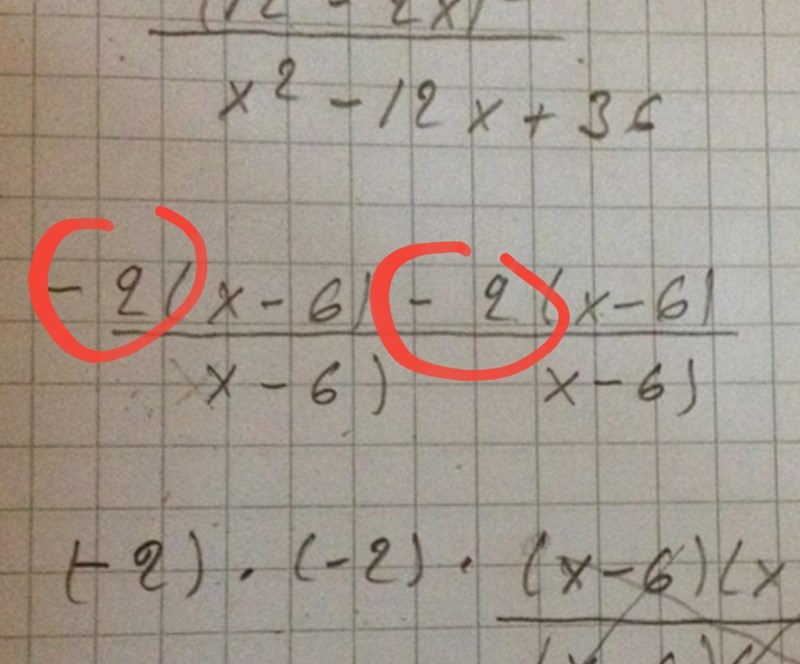 (12 - 2x)
x² - 12x + 36
- 2(x - 6) - 2(x - 6)
x - 6) x - 6)
(-2) · (-2) · (x - 6)(x